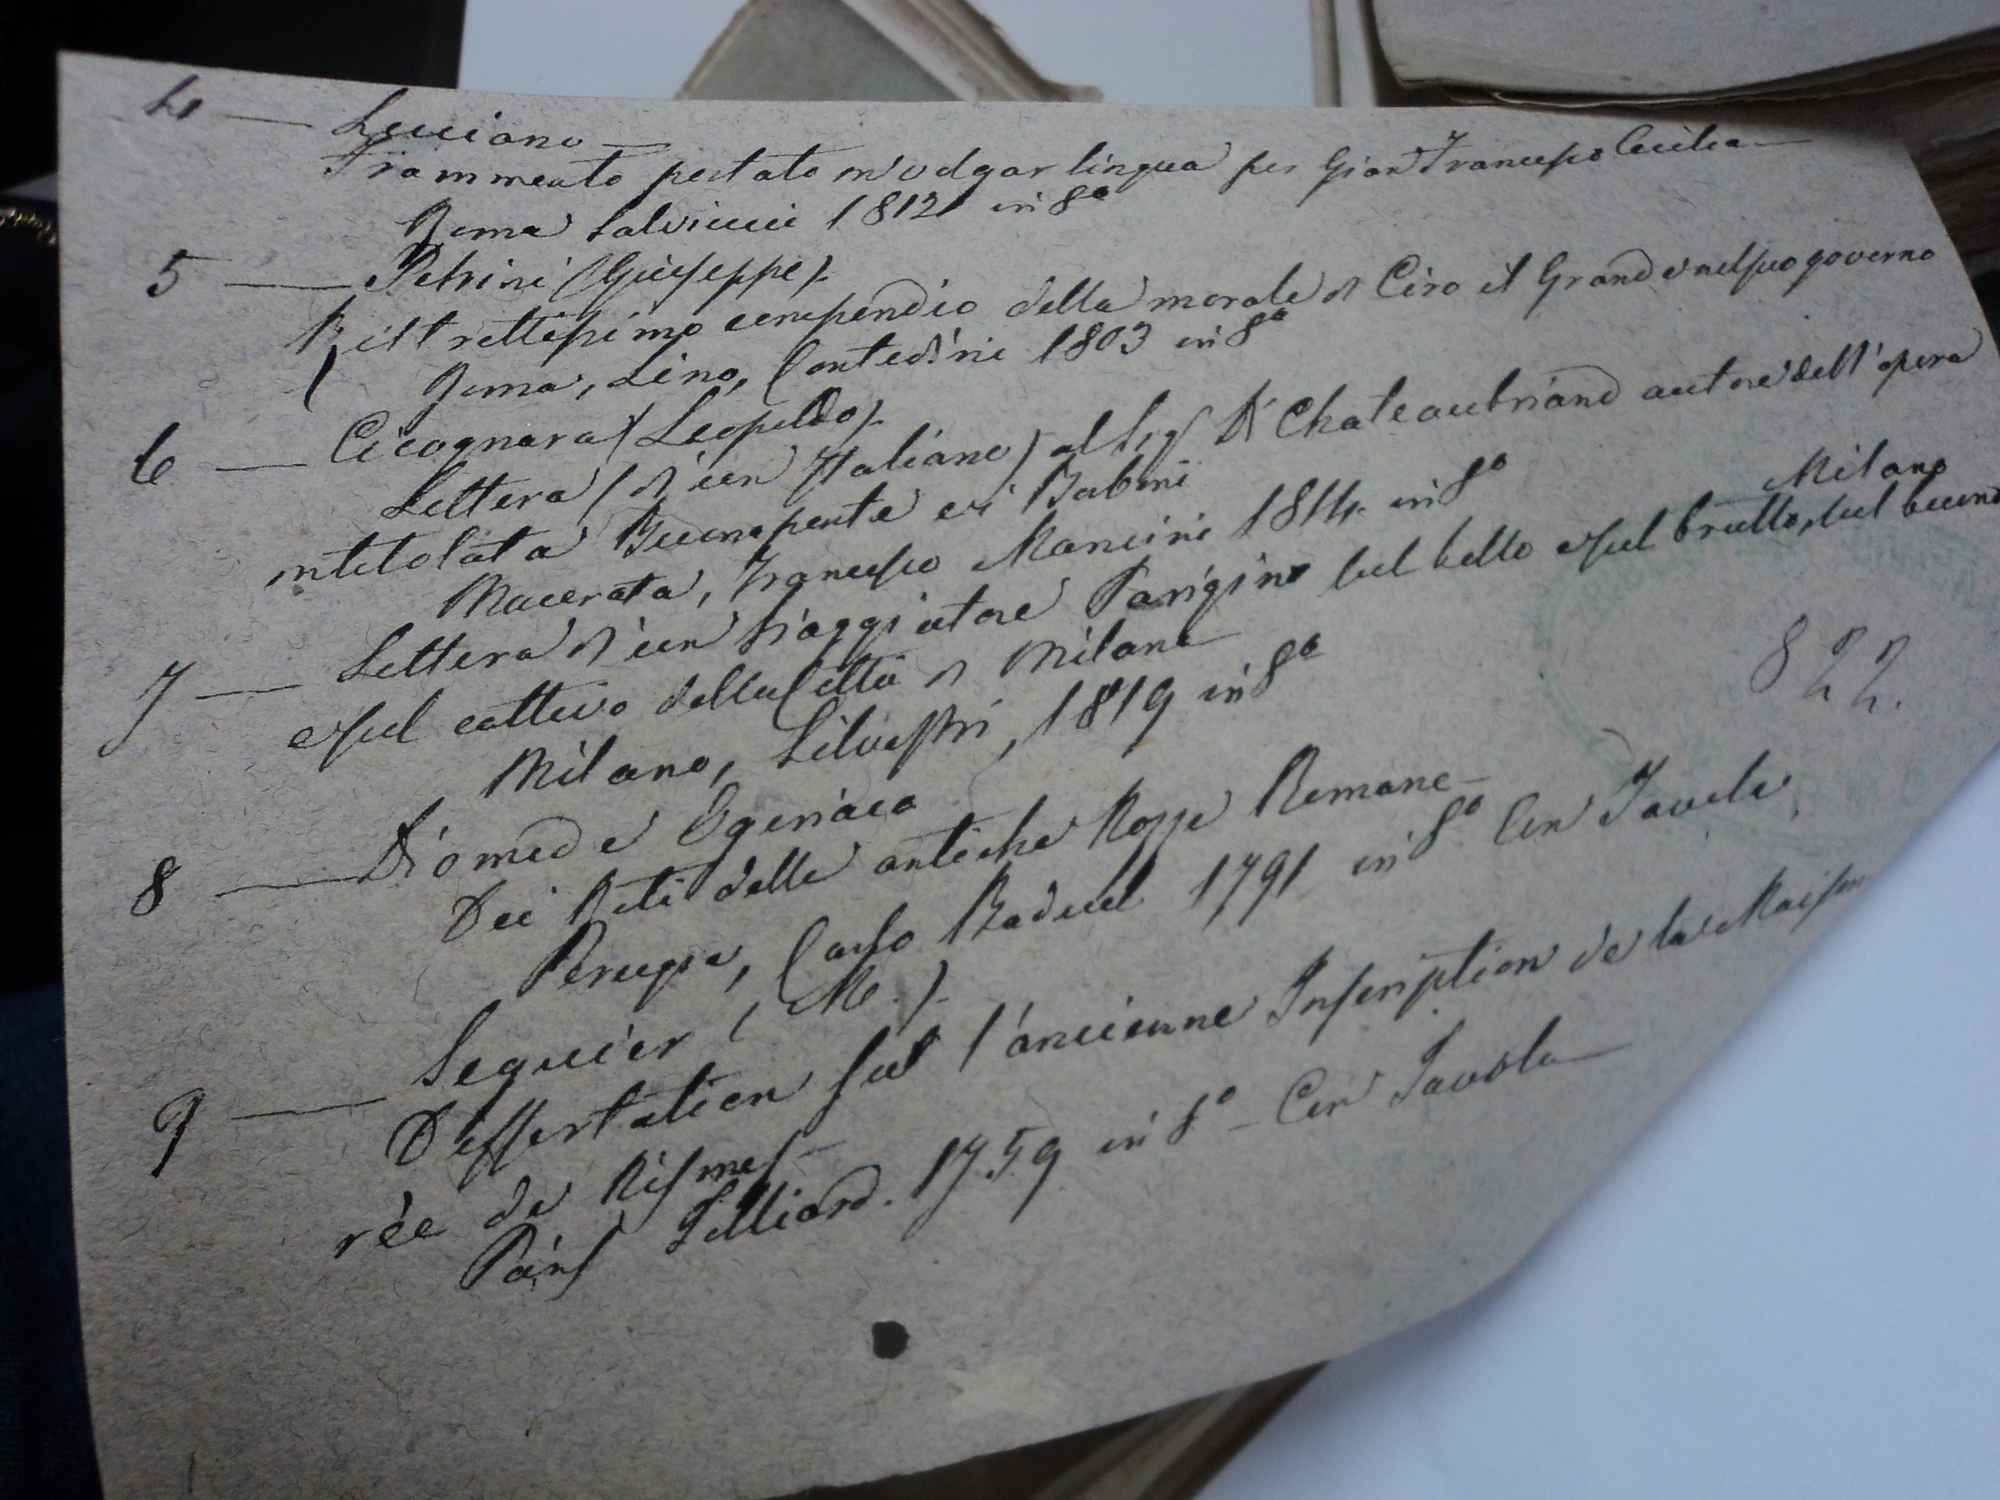 4 — Luciano —
Frammento portato in volgar lingua per Gian Francesco Cecilia —
Roma Salviucci 1812 in 8°
5 — Petrini (Giuseppe).
Ristrettissimo compendio della morale di Ciro il Grande nel suo governo
Roma, Lino, Contedini 1803 in 8°
6 — Cicognara (Leopoldo).
Lettera (d'un Italiano) al Sig. Di Chateaubriand autore dell'opera
intitolata Buonaparte ei Borboni
Macerata, Francesco Mancini 1814. in 8°
Milano
7 — Lettera d'un Viaggiatore Parigino sul bello e sul brutto, sul buono
e sul cattivo della Città di Milano
Milano, Silvestri, 1819 in 8°
822.
8 — Diomede Egeriaco
Dei Riti delle antiche Nozze Romane —
Perugia, Carlo Baduel 1791 in 8° Con Tavole
9 — Seguier (M.).
Dissertation sur l'ancienne Inscription de la Maison
rée de Nismes —
Paris Tilliard. 1759 in 8° — Con Tavola —